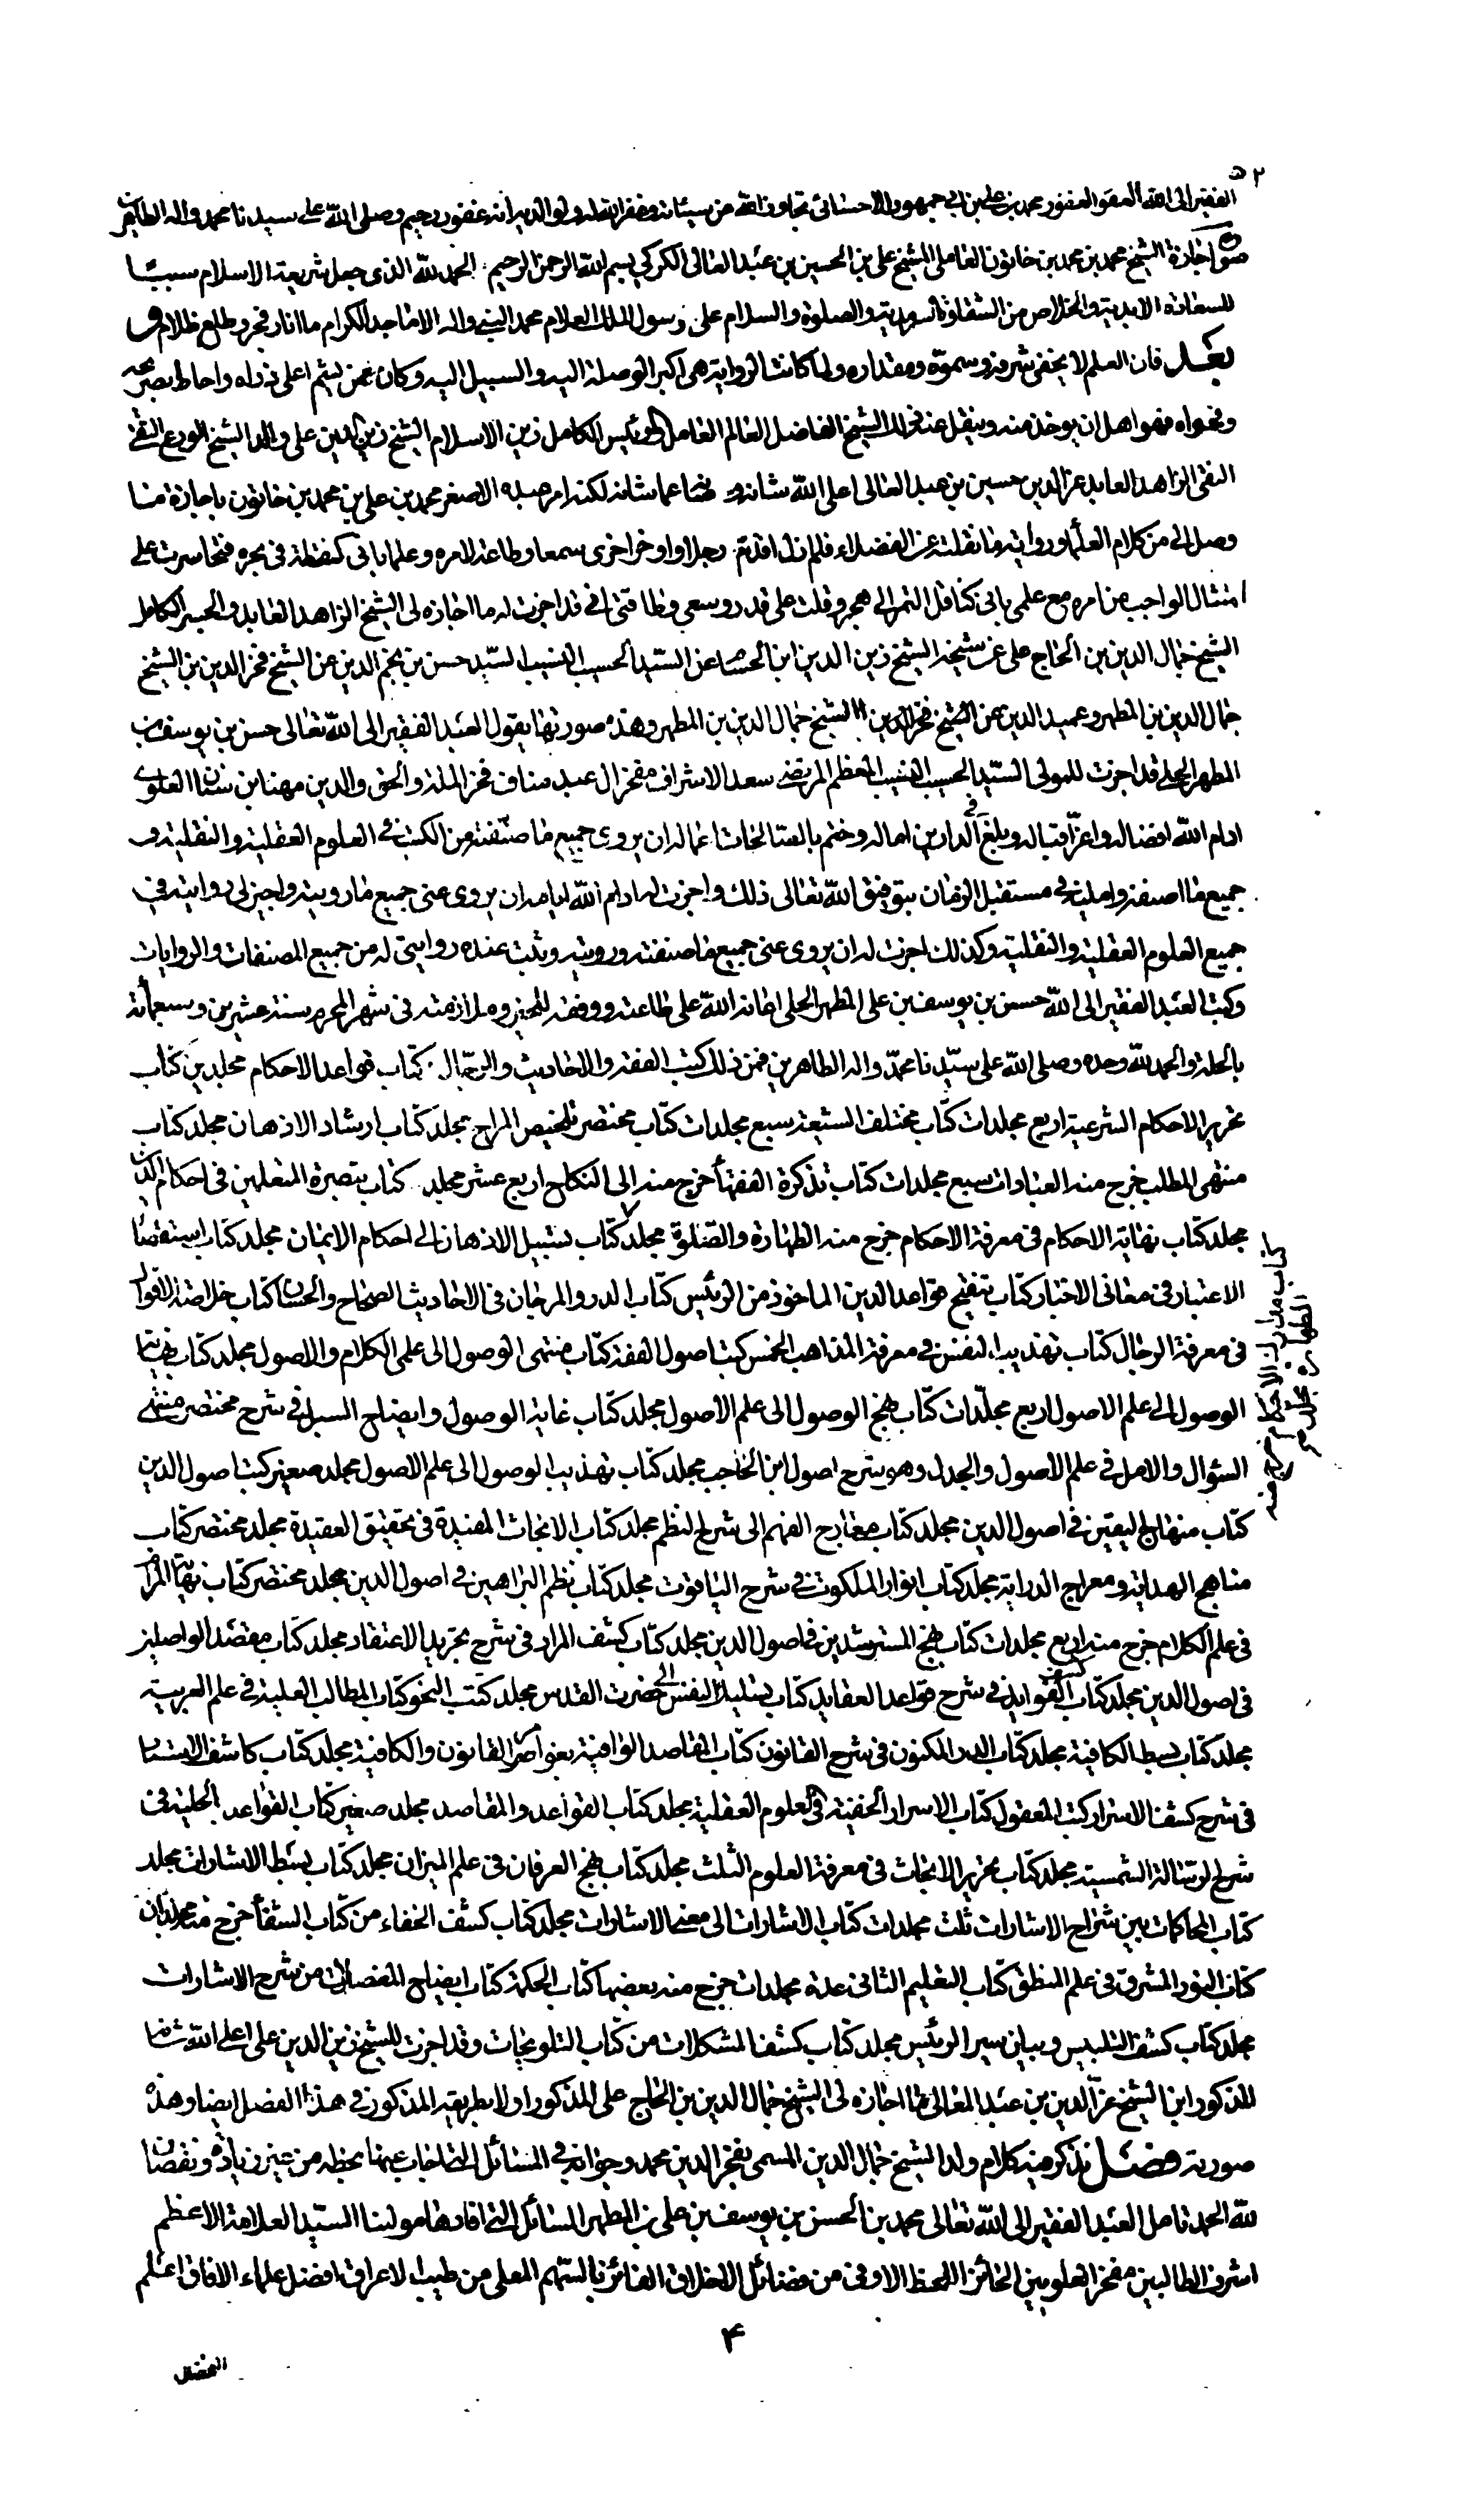 ٥٢
الفقير الى الله العفو الغفور محمد بن علي بن ابي جمهور الاحسائى تجاوز الله عن سيئاته وغفر الله له ولوالديه انه غفور رحيم وصلى الله على سيدنا محمد واله الطاهرين
صورة اجازة الشيخ محمد بن محمد بن خاتون العاملى للشيخ على بن الحسين بن عبد العالى الكركي بسم الله الرحمن الرحيم الحمد لله الذى جعل شريعة الاسلام سببا
للسعادة الابدية والخلاص من الشقاوة السرمدية والصلوة والسلام على رسول الملك العلام محمد النبي واله الاماجد الكرام ما انار فجر وطلع ظلام و
بعد فان العلم لا يخفى شرفه وسموه ومقداره ولما كانت الرواية هى اكبر الوصلة اليه والسبيل اليه وكان ممن تسنم اعلى ذراه واحاط بصريحه
وفحواه فهو اهل ان يوخذ منه وينقل عنه الشيخ الفاضل العالم العامل الرئيس الكامل زين الاسلام الشيخ زين الدين على ولد الشيخ الورع التقى
النقى الزاهد العابد عز الدين حسين بن عبد العالى اعلى الله شانه وصانه عما شانه لكنه امر عبده الاصغر محمد بن على بن محمد بن خاتون باجازة ما
وصل الى من كلام العلماء وروايته ما نقلته عن الفضلاء فلم ازل اقدم رجلا واوخر اخرى سمعا وطاعة لامره وعلما بانى كنقطة فى بحره فتجاسرت على
امتثال الواجب من امره مع علمى بانى كناقل التمر الى هجر وقلت على قدر وسعى وطاقتى انى قد اجزت له ما اجازه لى الشيخ الزاهد العابد الحبر الكامل
الشيخ جمال الدين بن الحاج على عن شيخه الشيخ زين الدين ابن الحسام عن السيد الحسيب النسيب السيد حسن بن نجم الدين عن الشيخ فخر الدين بن الشيخ
جمال الدين بن المطهر وعميد الدين عن الشيخ فخر الدين الشيخ جمال الدين بن المطهر وهذه صورتها يقول العبد الفقير الى الله تعالى حسن بن يوسف بن
المطهر الحلى قد اجزت للمولى السيد الحسيب النسيب المعظم المرتضى سعد الاشراف مفخر ال عبد مناف فخر الملة والحق والدين مهنا بن سنان العلوى
ادام الله افضاله واعز اقباله وبلغه فى الدارين اماله وختم بالصالحات اعماله ان يروى جميع ما صنفته من الكتب فى العلوم العقلية والنقلية و
جميع ما اصنفه وامليه فى مستقبل الزمان بتوفيق الله تعالى ذلك واجزت له ادام الله ايامه ان يروى عنى جميع ما رويته واجيز لى روايته فى
جميع العلوم العقلية والنقلية وكذلك اجزت له ان يروى عنى جميع ما صنفته ورويته وثبت عنده روايتى له من جميع المصنفات والروايات
وكتب العبد الفقير الى الله حسن بن يوسف بن على المطهر الحلى اعانه الله على طاعته ووفقه للخير وملازمته فى شهر المحرم سنة عشرين وسبعمائة
بالحلة والحمد لله وحده وصلى الله على سيدنا محمد واله الطاهرين فمن ذلك كتب الفقه والاحاديث والرجال كتاب قواعد الاحكام مجلدين كتاب
تحرير الاحكام الشرعية اربع مجلدات كتاب مختلف الشيعة سبع مجلدات كتاب مختصر تلخيص المرام مجلد كتاب ارشاد الاذهان مجلد كتاب
منتهى المطلب خرج منه العبادات سبع مجلدات كتاب تذكرة الفقهاء خرج منه الى النكاح اربع عشر مجلد كتاب تبصرة المتعلمين فى احكام الدين
مجلد كتاب نهاية الاحكام فى معرفة الاحكام خرج منه الطهارة والصلوة مجلد كتاب تسبيل الاذهان الى احكام الايمان مجلد كتاب استقصاء
الاعتبار فى معانى الاخبار كتاب تنقيح قواعد الدين الماخوذ من الرئيس كتاب الدر والمرجان فى الاحاديث الصحاح والحسان كتاب خلاصة الاقوال
فى معرفة الرجال كتاب تهذيب النفس فى معرفة المذاهب الخمس كتب اصول الفقه كتاب منتهى الوصول الى علمى الكلام والاصول مجلد كتاب نهاية
الوصول الى علم الاصول اربع مجلدات كتاب نهج الوصول الى علم الاصول مجلد كتاب غاية الوصول وايضاح السبل فى شرح مختصر منتهى
السؤال والامل فى علم الاصول والجدل وهو شرح اصول ابن الحاجب مجلد كتاب تهذيب الوصول الى علم الاصول مجلد صغير كتب اصول الدين
كتاب منهاج اليقين فى اصول الدين مجلد كتاب معارج الفهم الى شرح النظم مجلد كتاب الابحاث المفيدة فى تحقيق العقيدة مجلد مختصر كتاب
مناهج الهداية ومعراج الدراية مجلد كتاب انوار الملكوت فى شرح الياقوت مجلد كتاب نظم البراهين فى اصول الدين مجلد مختصر كتاب نهاية المرام
فى علم الكلام خرج منه اربع مجلدات كتاب نهج المسترشدين فى اصول الدين مجلد كتاب كشف المراد فى شرح تجريد الاعتقاد مجلد كتاب مقصد الواصلين
فى اصول الدين مجلد كتاب كشف الفوايد فى شرح قواعد العقايد كتاب تسليك النفس الى حضرت القدس مجلد كتب النحو كتاب المطالب العلية فى علم العربية
مجلد كتاب بسط الكافية مجلد كتاب الدر المكنون فى شرح القانون كتاب المقاصد الوافية بغوامض القانون والكافية مجلد كتاب كاشف الاستار
فى شرح كشف الاسرار كتب المعقول كتاب الاسرار الخفية فى العلوم العقلية مجلد كتاب القواعد والمقاصد مجلد صغير كتاب القواعد الجلية فى
شرح الرسالة الشمسية مجلد كتاب تحرير الابحاث فى معرفة العلوم الثلث مجلد كتاب نهج العرفان فى علم الميزان مجلد كتاب بسط الاشارات مجلد
كتاب المحاكمات بين شراح الاشارات ثلث مجلدات كتاب الاشارات الى معنى الاشارات مجلد كتاب كشف الخفاء من كتاب الشفاء خرج منه مجلدان
كتاب النور المشرق فى علم المنطق كتاب التعليم الثانى عدة مجلدات خرج منه بعضها كتاب الحكمة كتاب ايضاح المعضلات من شرح الاشارات
مجلد كتاب كشف التلبيس وبيان سير الرئيس مجلد كتاب كشف المشكلات من كتاب التلويحات وقد اجزت للشيخ زين الدين على اعلى الله شانه
المذكور ابن الشيخ عز الدين بن عبد العالى ما اجازه لى الشيخ جمال الدين بن الحاج على المذكور اولا بطريقه المذكور فى هذا الفصل ايضا وهذه
صورته فصل نذكر فيه كلام ولد الشيخ جمال الدين المسمى بفخر الدين محمد وجوابه فى المسائل الصالحات عنها بخطه من غير زيادة ونقصان
لله الحمد تامل العبد الفقير الى الله تعالى محمد بن الحسن بن يوسف بن على بن المطهر المسائل التى افادها مولينا السيد العلامة الاعظم
اشرف الطالبين مفخر العلويين الحائز الحظ الاوفى من فضائل الاخلاق الفائز بالسهم المعلى من طيب الاعراق افضل علماء الافاق اعلم
٤
الفضل